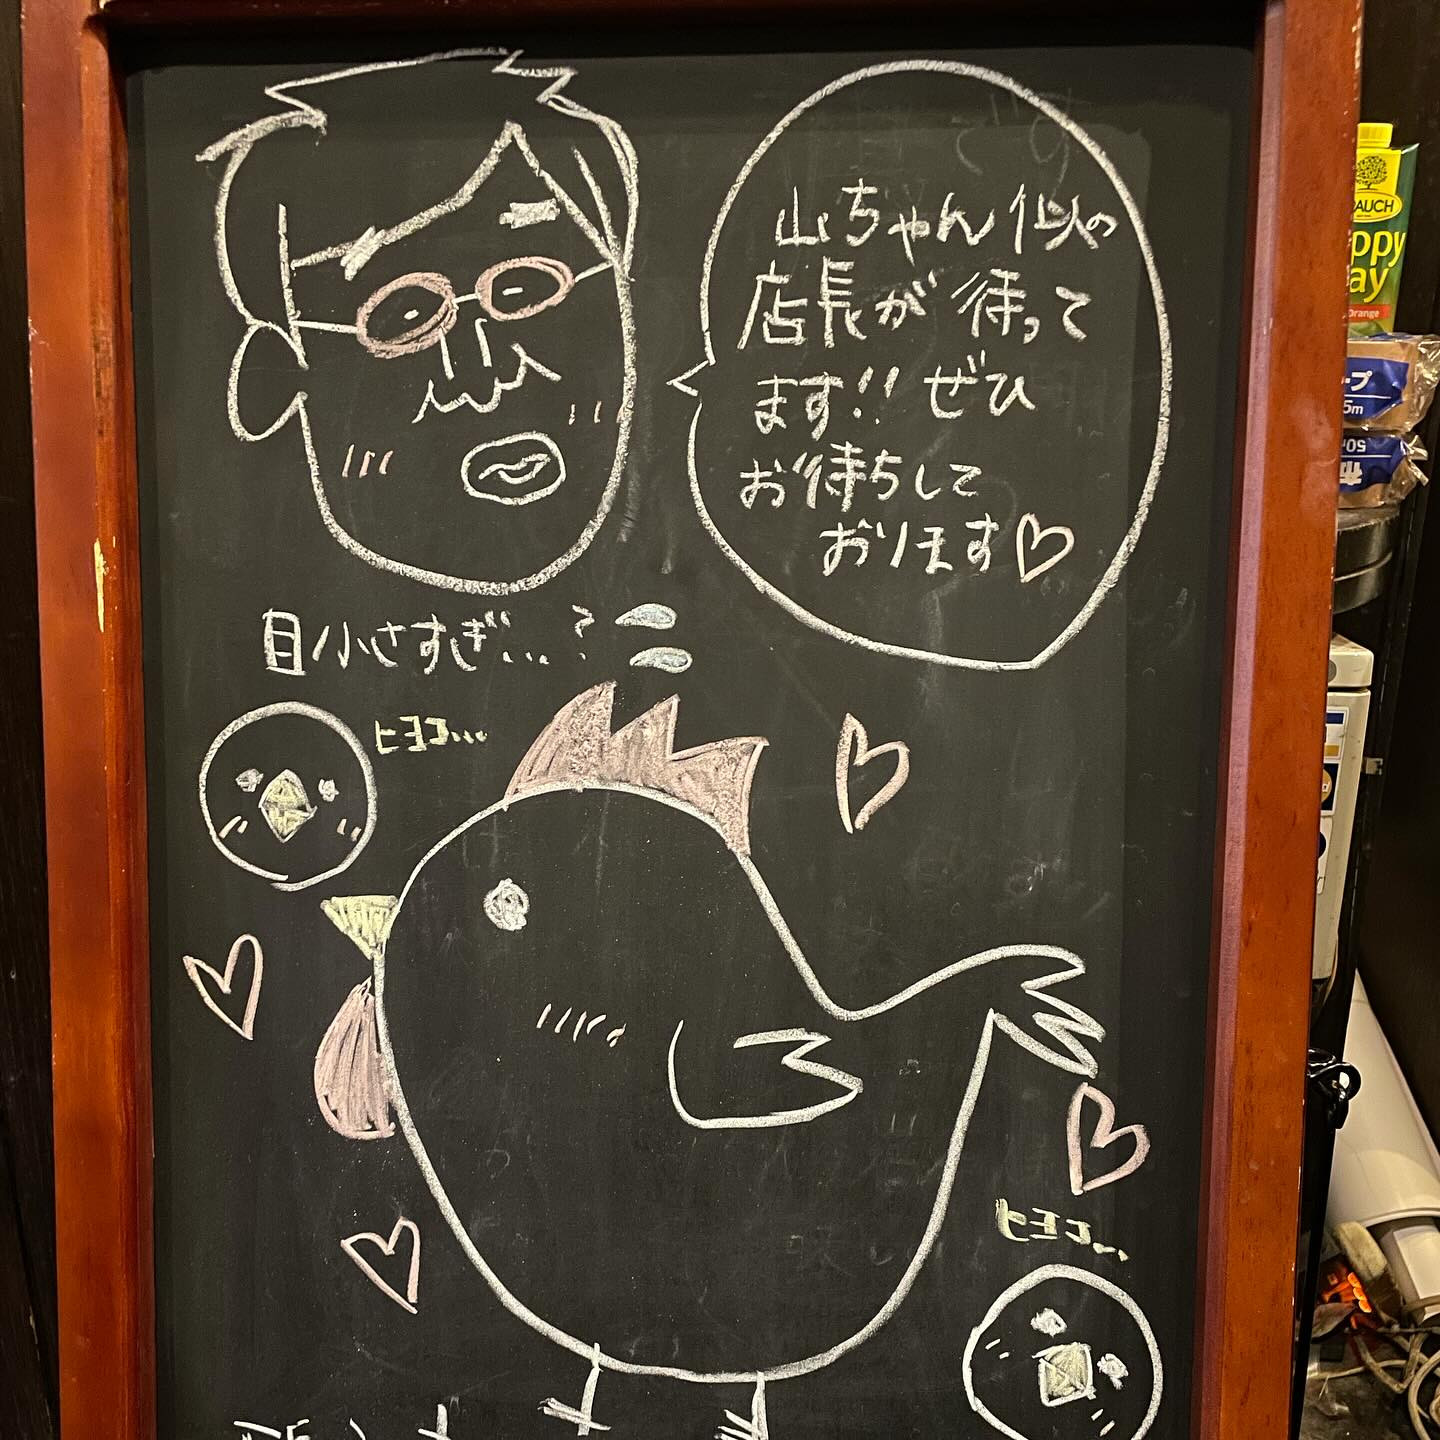 山ちゃん似の
店長が待って
ます!!ぜひ
お待ちして
おります♡
目小さすぎ...?
ヒヨコ...
ヒヨコ...
RAUCH
ppy
ay
Orange
ープ
5m